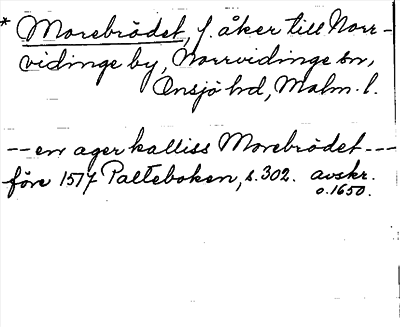 * Morebrödet, f. åker till Norr-
vidinge by, Norrvidinge sn,
Onsjö hd, Malm. l.
-- en ager kalliss Morebrödet ---
före 1517 Palteboken, s. 302. avskr.
o. 1650.